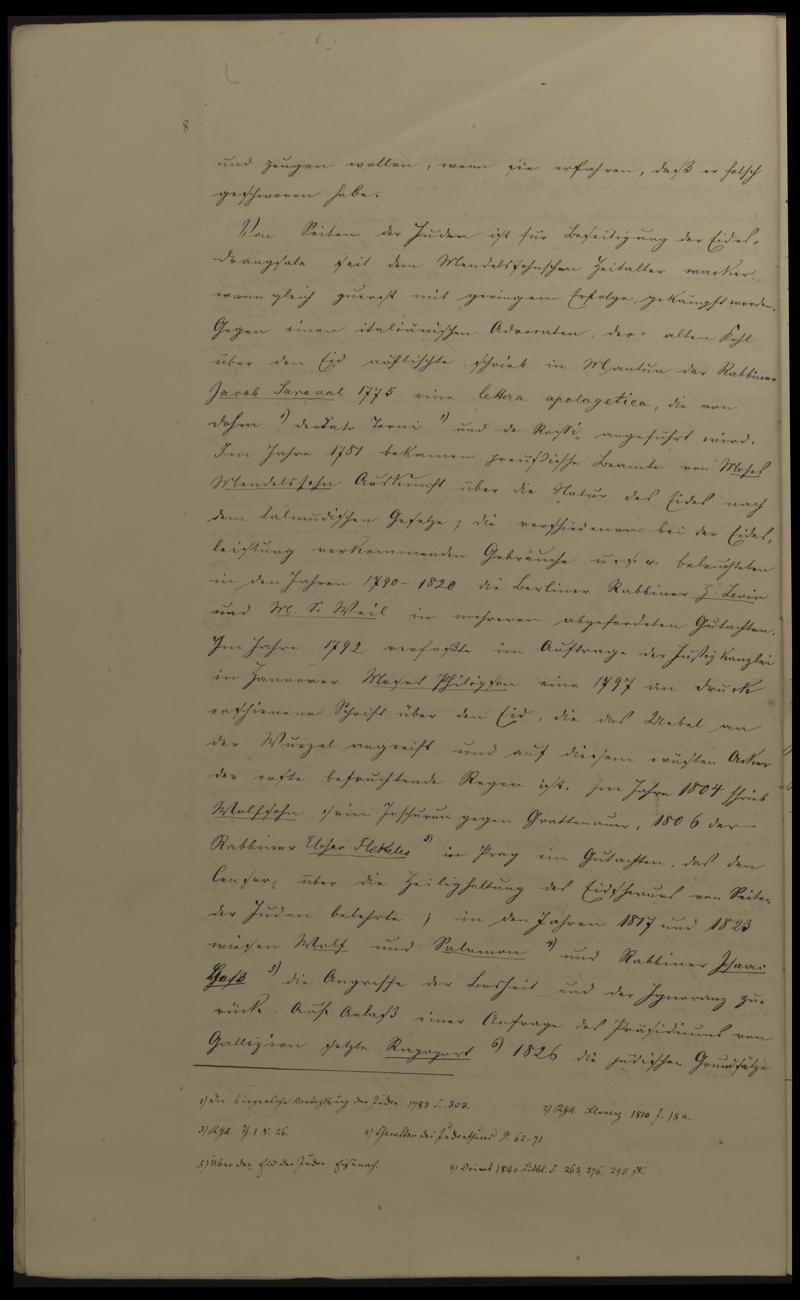 8
und zeugen wollen, wenn sie erfahren, daß er falsch
geschworen habe.
Von Seiten der Juden ist für Beseitigung der Eides-
drangsale seit dem Mendelssohnschen Zeitalter wacker,
wenn gleich zuerst mit geringem Erfolge, gekämpft worden.
Gegen einen italiänischen Advocaten, der alten Kohl
über den Eid auftischte, schrieb in Mantua der Rabbiner
Jacob Saraval 1775 eine lettera apologetica, die von
Dohm 1) deodato Torni 2) und de Rossi angeführt wird.
Im Jahre 1781 bekamen preußische Beamte von Moses
Mendelssohn Auskunft über die Natur des Eides nach
dem talmudischen Gesetze; die verschiedenen bei der Eides-
leistung vorkommenden Gebräuche u. s. w. beleuchteten
in den Jahren 1790-1820 die Berliner Rabbiner H. Levin
und M. S. Weil in mehreren abgeforderten Gutachten.
Im Jahre 1792 verfaßte im Auftrage der Justizkanzlei
in Hannover Moses Philipson eine 1797 im Druck
erschienene Schrift über den Eid, die das Uebel an
der Wurzel angreift und auf diesem Acker
der erste befruchtende Regen ist. Im Jahre 1804 schrieb
Wolfssohn sein Jeschurun gegen Grattenauer, 1806 der
Rabbiner Eleasar Flekeles 3) in Prag ein Gutachten, das den
Censor über die Heilighaltung des Eidschwurs von Seiten
der Juden belehrte; in den Jahren 1817 und 1823
wiesen Wolf und Salomon 4) und Rabbiner Isaac
Heß 5) die Angriffe der Bosheit und der Ignoranz zu-
rück. Auf Anlaß einer Anfrage des Präsidiums von
Gallizien setzte Rapoport 6) 1826 die jüdischen Grundsätze
1) Die bürgerliche Verbesserung der Juden. 1783 S. 303.
2) RGA. Florenz 1810 f. 18a.
3) RGA. Th. 1 N. 26.
4) Charakter des Judenthums S. 62-71.
5) Über den Eid der Juden. Eisenach.
6) Orient 1840 Litbl. S. 263, 276, 295 ff.